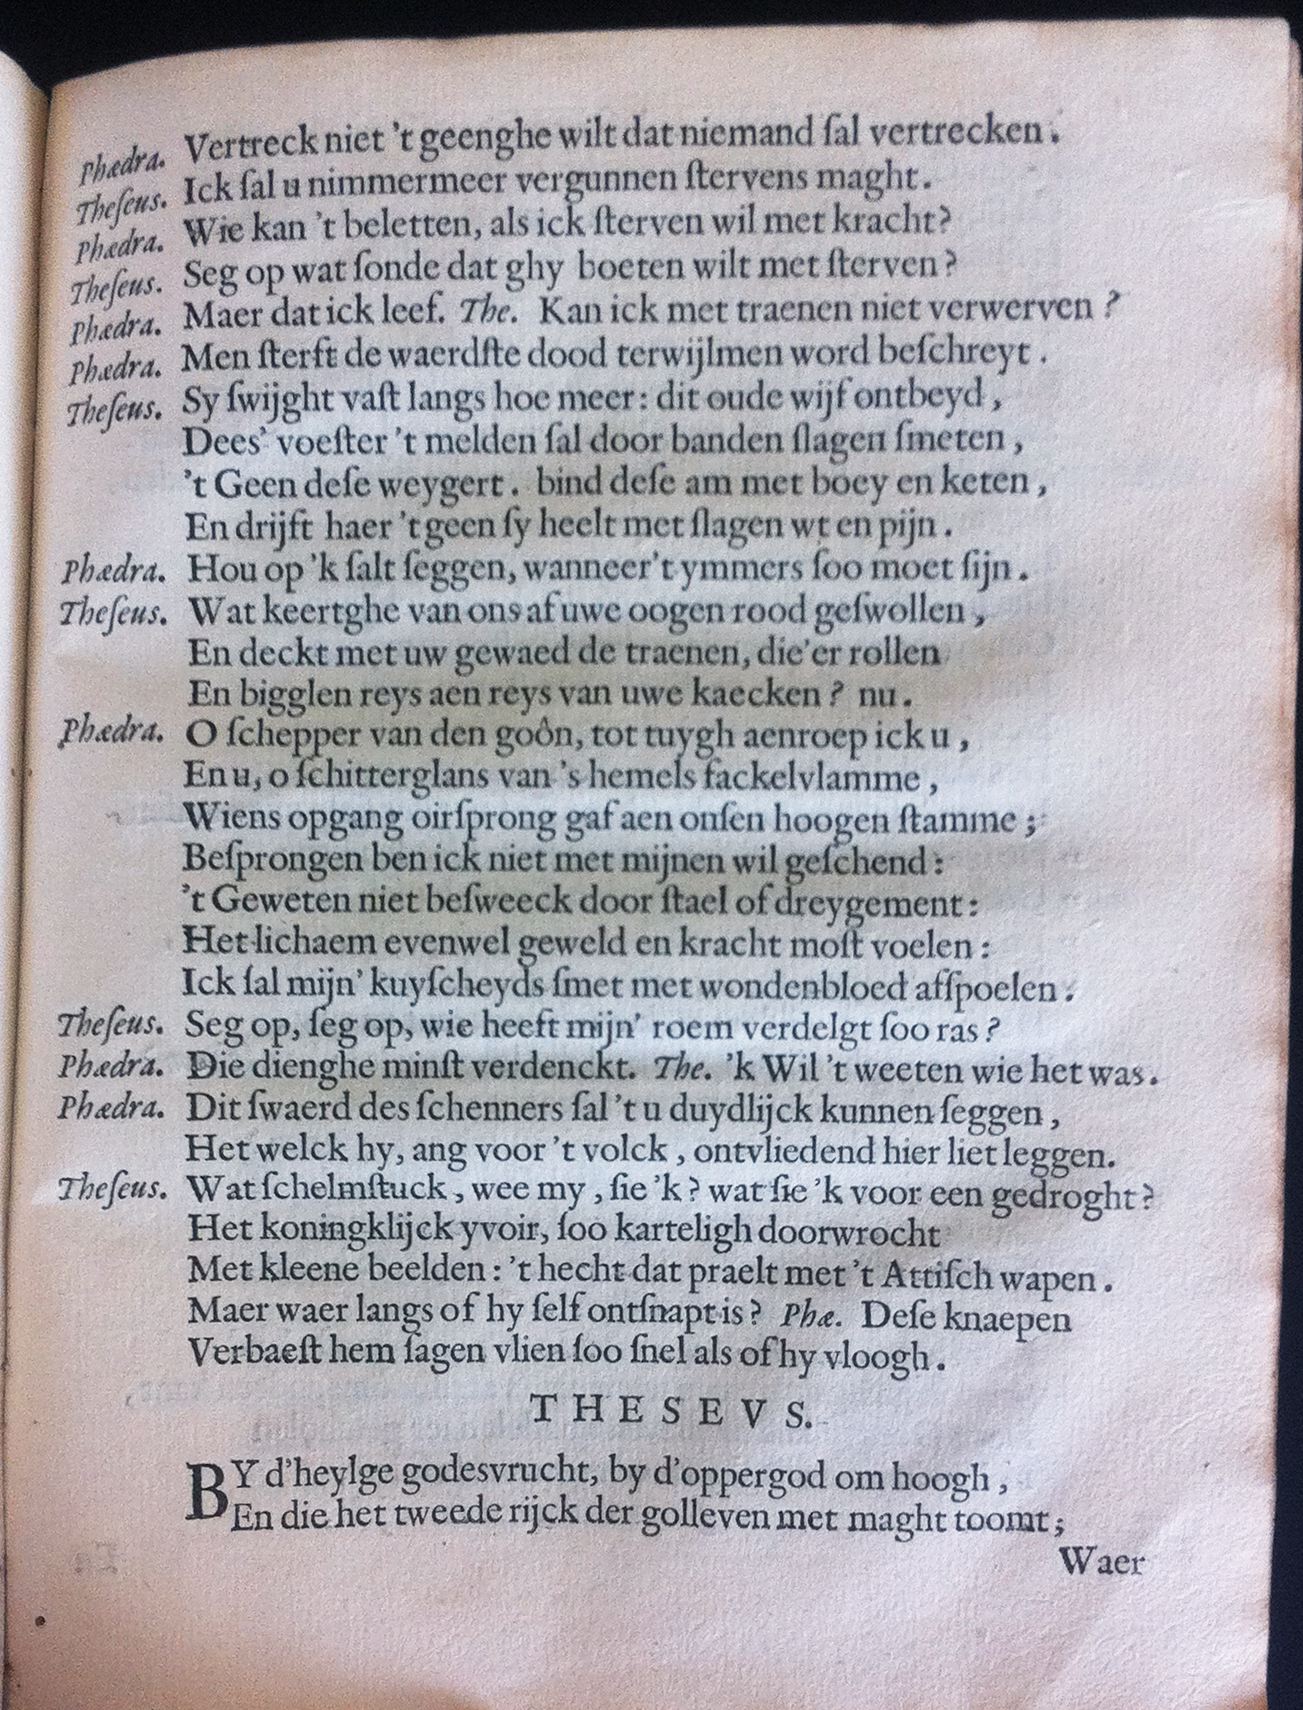 Phædra. Vertreck niet 't geenghe wilt dat niemand ſal vertrecken.
Theſeus. Ick ſal u nimmermeer vergunnen ſtervens maght.
Phædra. Wie kan 't beletten, als ick ſterven wil met kracht?
Theſeus. Seg op wat ſonde dat ghy boeten wilt met ſterven?
Phædra. Maer dat ick leef. The. Kan ick met traenen niet verwerven?
Phædra. Men ſterft de waerdſte dood terwijlmen word beſchreyt.
Theſeus. Sy ſwijght vaſt langs hoe meer: dit oude wijf ontbeyd,
Dees' voeſter 't melden ſal door banden ſlagen ſmeten,
't Geen deſe weygert. bind deſe am met boey en keten,
En drijft haer 't geen ſy heelt met ſlagen wt en pijn.
Phædra. Hou op 'k ſalt ſeggen, wanneer't ymmers ſoo moet ſijn.
Theſeus. Wat keertghe van ons af uwe oogen rood geſwollen,
En deckt met uw gewaed de traenen, die'er rollen
En bigglen reys aen reys van uwe kaecken? nu.
Phædra. O ſchepper van den goôn, tot tuygh aenroep ick u,
En u, o ſchitterglans van 's hemels fackelvlamme,
Wiens opgang oirſprong gaf aen onſen hoogen ſtamme;
Beſprongen ben ick niet met mijnen wil geſchend:
't Geweten niet beſweeck door ſtael of dreygement:
Het lichaem evenwel geweld en kracht moſt voelen:
Ick ſal mijn' kuyſcheyds ſmet met wondenbloed afſpoelen.
Theſeus. Seg op, ſeg op, wie heeft mijn' roem verdelgt ſoo ras?
Phædra. Die dienghe minſt verdenckt. The. 'k Wil 't weeten wie het was.
Phædra. Dit ſwaerd des ſchenners ſal 't u duydlijck kunnen ſeggen,
Het welck hy, ang voor 't volck, ontvliedend hier liet leggen.
Theſeus. Wat ſchelmſtuck, wee my, ſie 'k? wat ſie 'k voor een gedroght?
Het koningklijck yvoir, ſoo karteligh doorwrocht
Met kleene beelden: 't hecht dat praelt met 't Attiſch wapen.
Maer waer langs of hy ſelf ontſnapt is? Phæ. Deſe knaepen
Verbaeſt hem ſagen vlien ſoo ſnel als of hy vloogh.
THESEVS.
BY d'heylge godesvrucht, by d'oppergod om hoogh,
En die het tweede rijck der golleven met maght toomt;
Waer